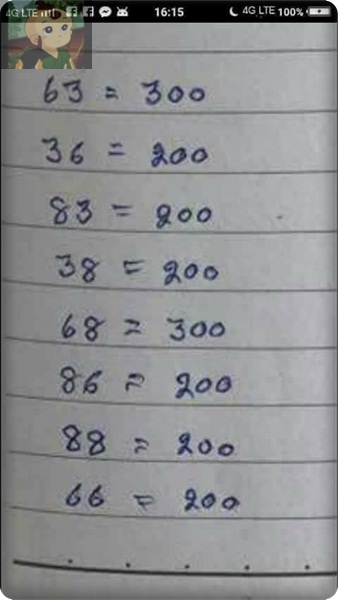 4G LTE 16:15 4G LTE 100%
63 = 300
36 = 200
83 = 200
38 = 200
68 = 300
86 = 200
88 = 200
66 = 200